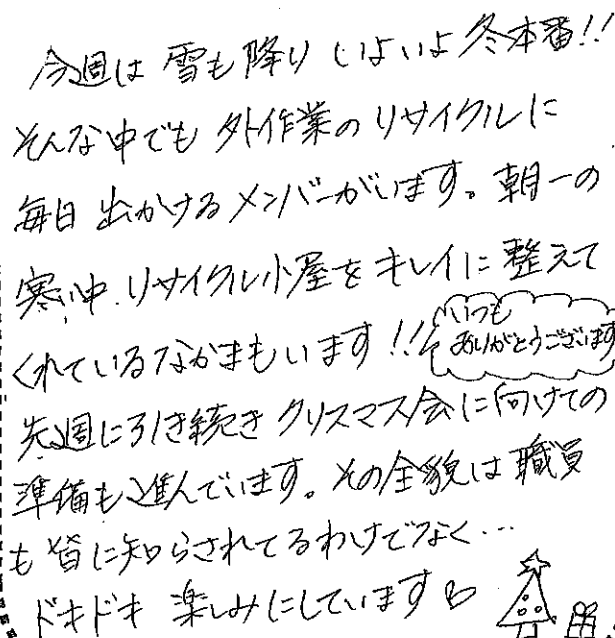 今週は 雪も降り いよいよ 冬本番!!
そんな中でも 外作業の リサイクルに
毎日 出かける メンバーがいます。朝一の
寒い中、リサイクル小屋を キレイに 整えて
くれている なかまもいます!!
いつも
ありがとうございます
先週に引き続き クリスマス会に向けての
準備も進んでいます。その全貌は 職員
も 皆に知らされてるわけでなく…
ドキドキ 楽しみにしています♡